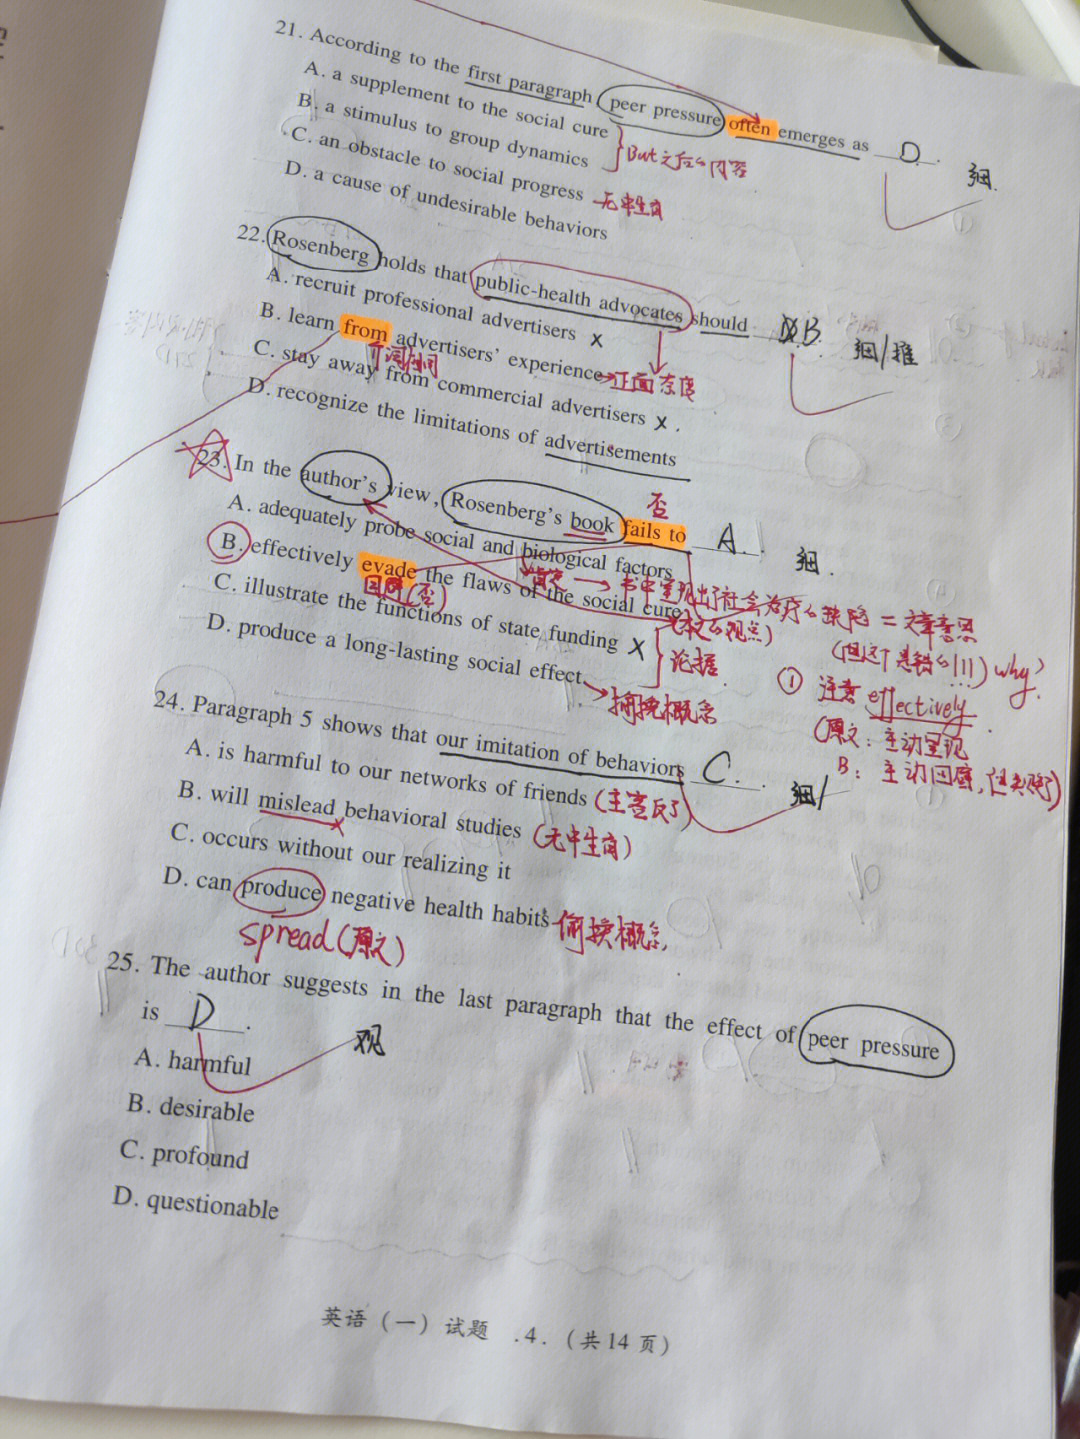 21. According to the first paragraph peer pressure often emerges as D.
细.
A. a supplement to the social cure
B. a stimulus to group dynamics
But之后的内容
C. an obstacle to social progress 无中生有
D. a cause of undesirable behaviors
22. Rosenberg holds that public-health advocates should B.
细/推
A. recruit professional advertisers ×
B. learn from advertisers' experience→正面态度
C. stay away from commercial advertisers ×.
D. recognize the limitations of advertisements
否
23. In the author's view, Rosenberg's book fails to A.
细.
A. adequately probe social and biological factors
B. effectively evade the flaws of the social cure
回避(否)
肯定→书中呈现出了社会治疗的缺陷=文章意思
(本文的观点)
(但这个是错的!!!) why?
C. illustrate the functions of state funding ×
论据
D. produce a long-lasting social effect
→偷换概念
① 注意 effectively
(原文:主动呈现
B:主动回避,但失败了)
24. Paragraph 5 shows that our imitation of behaviors C.
细/
A. is harmful to our networks of friends (主宾反了)
B. will mislead behavioral studies (无中生有)
C. occurs without our realizing it
D. can produce negative health habits 偷换概念
spread(原文)
25. The author suggests in the last paragraph that the effect of peer pressure
is D.
观
A. harmful
B. desirable
C. profound
D. questionable
英语(一)试题 .4.(共14页)